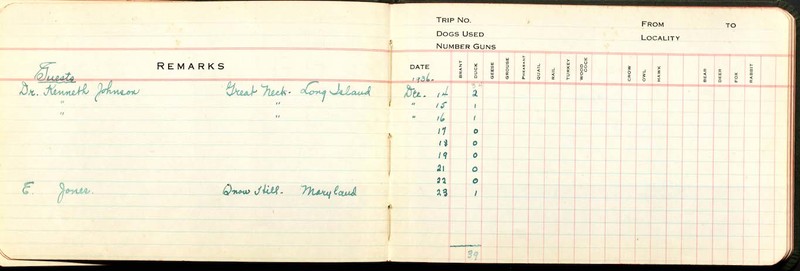 REMARKS
Guests
Dr. Kenneth Johnson Great Neck. Long Island
" "
" "
E. Jones. Snow Hill. Maryland
TRIP NO. FROM TO
DOGS USED LOCALITY
NUMBER GUNS
DATE BRANT DUCK GEESE GROUSE PHEASANT QUAIL RAIL TURKEY WOOD COCK CROW OWL HAWK BEAR DEER FOX RABBIT
1936.
Dec. 14 2
" 15 1
" 16 1
17 0
18 0
19 0
21 0
22 0
23 1
39